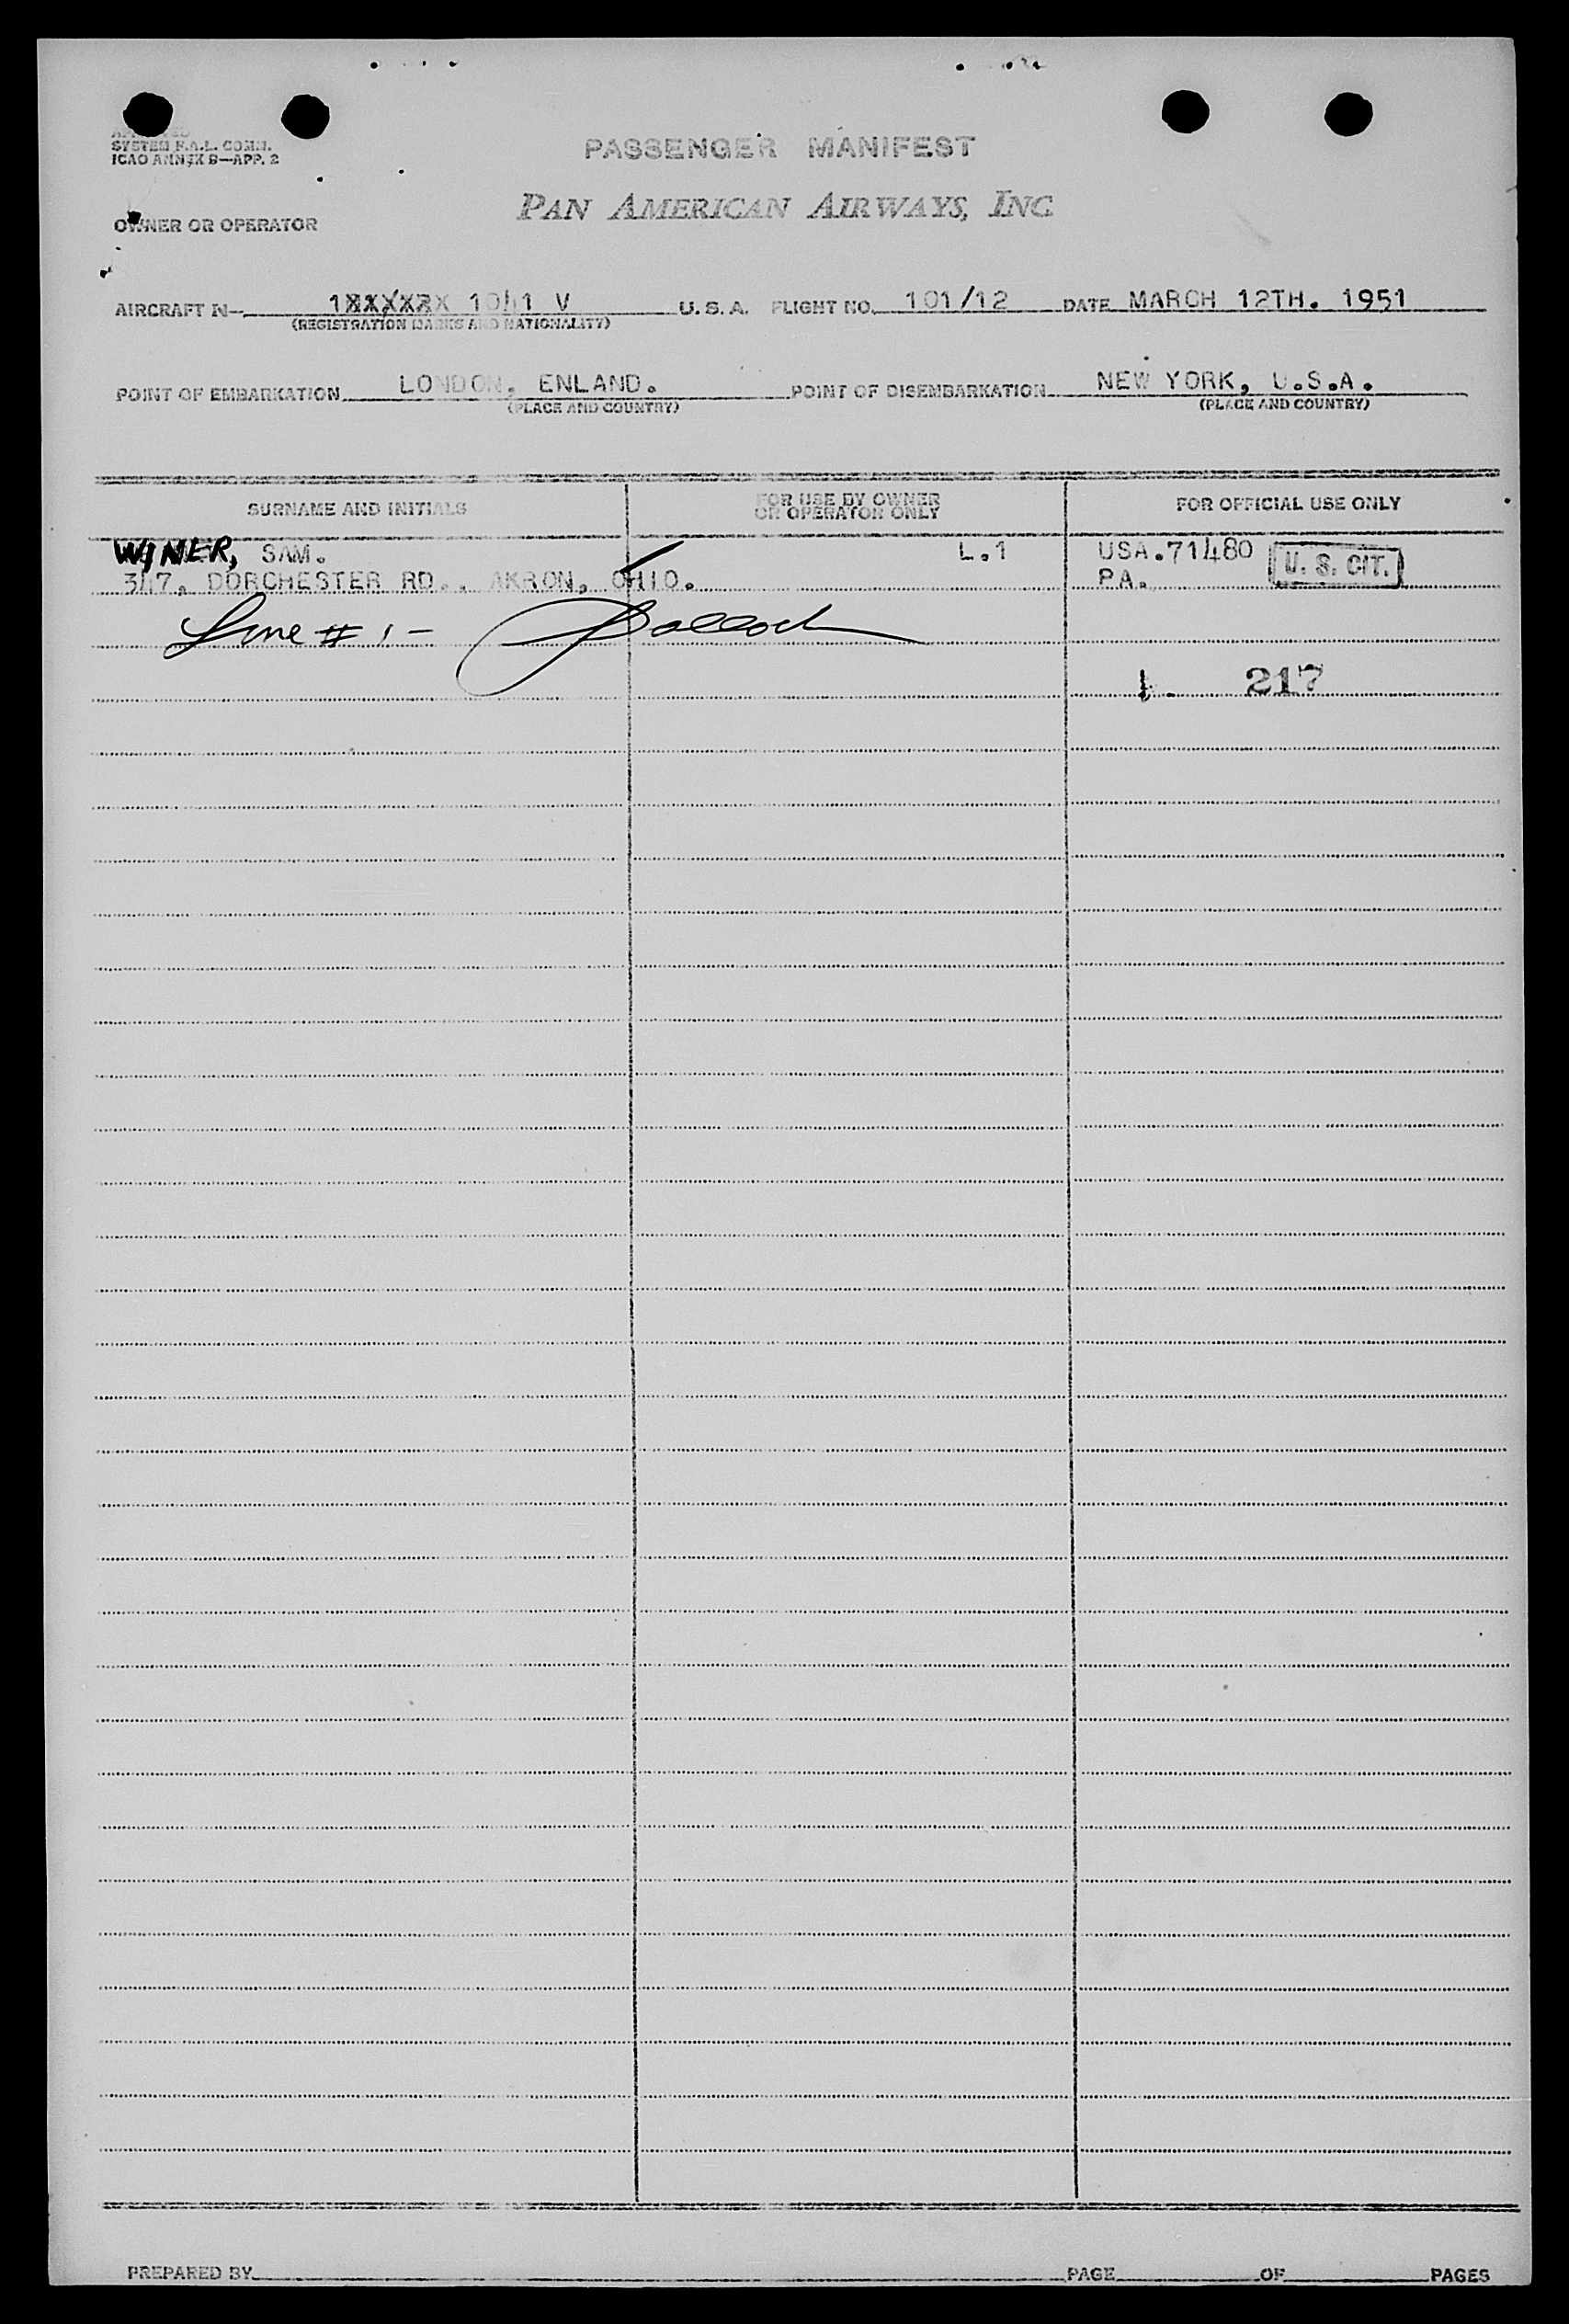 SYSTEM F.A.L. COMM.
ICAO ANNEX 9—APP. 2
PASSENGER MANIFEST
PAN AMERICAN AIRWAYS, INC.
OWNER OR OPERATOR
AIRCRAFT N- 1041 V U. S. A. FLIGHT NO. 101/12 DATE MARCH 12TH. 1951
(REGISTRATION MARKS AND NATIONALITY)
POINT OF EMBARKATION LONDON, ENLAND. POINT OF DISEMBARKATION NEW YORK, U.S.A.
(PLACE AND COUNTRY) (PLACE AND COUNTRY)
SURNAME AND INITIALS FOR USE BY OWNER OR OPERATOR ONLY FOR OFFICIAL USE ONLY
WINER, SAM. L.1 USA.71480 U. S. CIT.
347, DORCHESTER RD., AKRON, OHIO. PA.
Line # 1 -
217
PREPARED BY PAGE OF PAGES